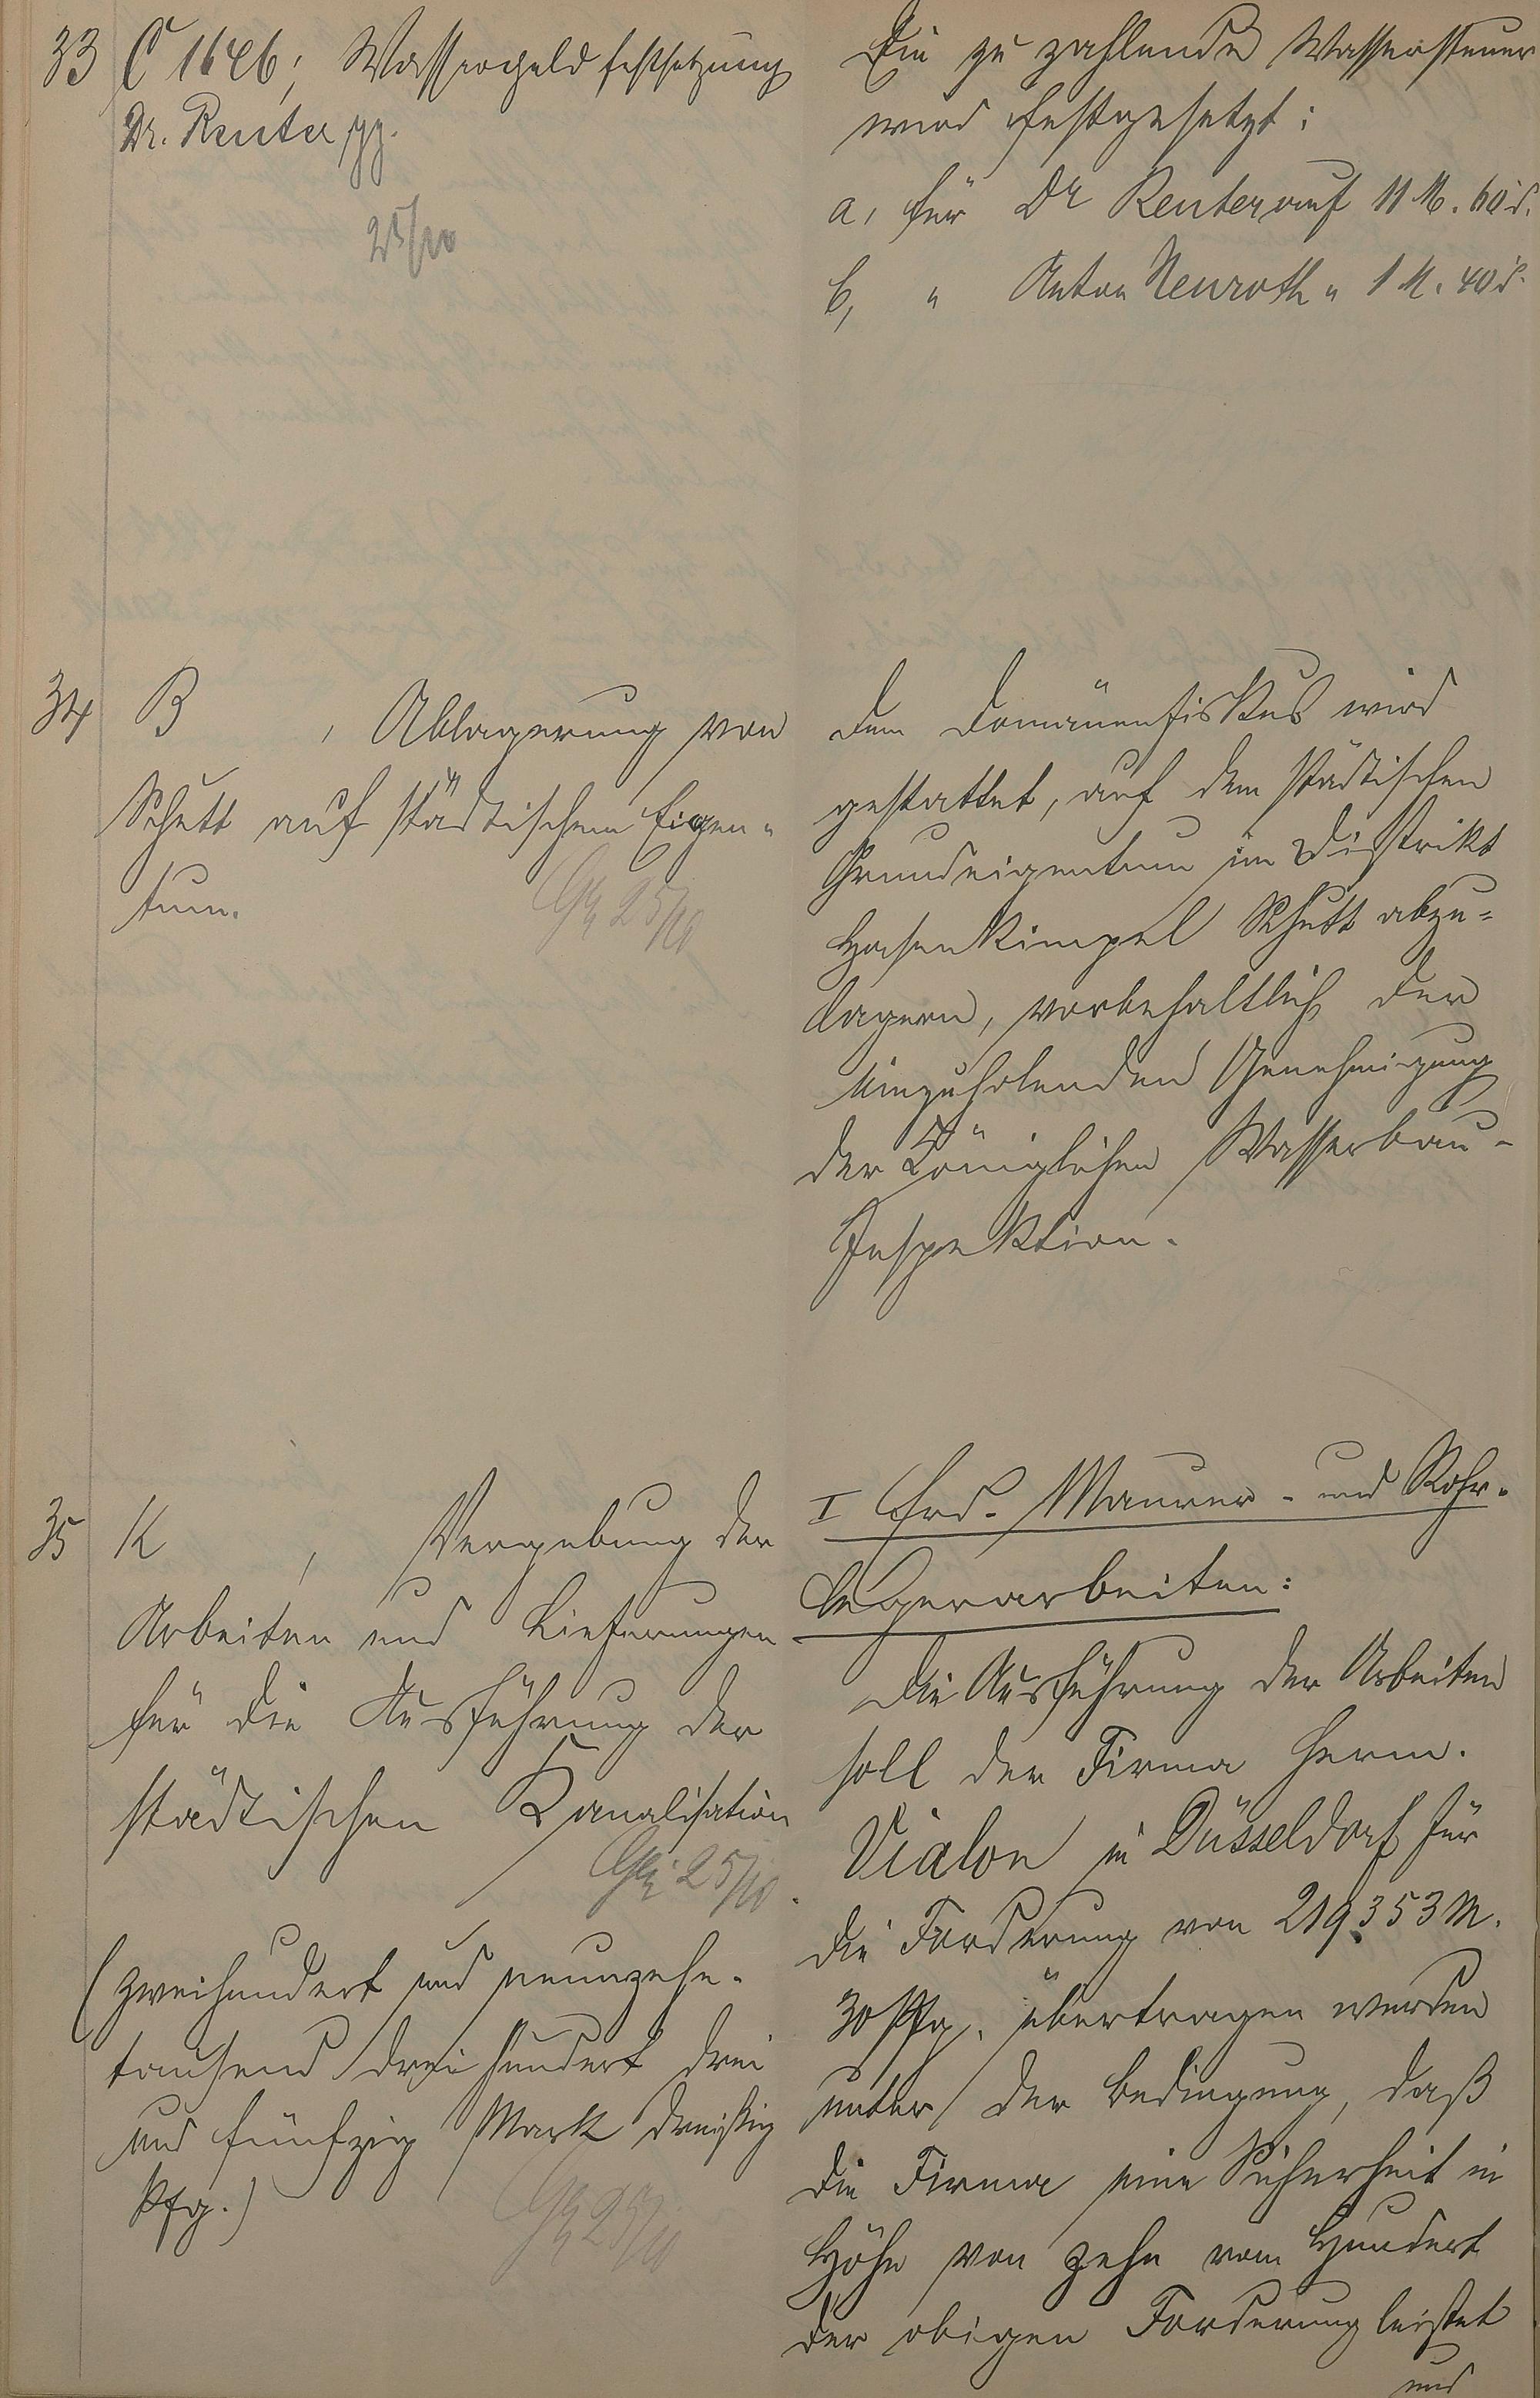 33 C 1646; Wassergeldfestsetzung
Dr. Reuter pp.
25/10
Die zu zahlende Wassersteuer
wird festgesetzt:
a, für Dr Reuter auf 11 M. 60 d.
b, " Anton Neuroth " 1 M. 40 d.
34 B , Ablagerung von
Schutt auf städtischem Eigen-
tum.
25/10
Dem Domänenfiskus wird
gestattet, auf dem städtischen
Grundeigentum im Distrikt
Hasenkimpel Schutt abzu-
lagern, vorbehaltlich der
einzuholenden Genehmigung
der Königlichen Wasserbau-
Inspektion.
35 K , Vergebung der
Arbeiten und Lieferungen
für die Ausführung der
städtischen Kanalisation
25/10.
(zweihundert und neunzehn-
tausend dreihundert drei
und fünfzig Mark dreißig
Pfg.)
25/10
I Erd- Maurer- und Rohr-
legerarbeiten:
Die Ausführung der Arbeiten
soll der Firma Herm.
Vialon in Düsseldorf für
die Forderung von 219353 M.
30 Pfg. übertragen werden
unter der Bedingung, daß
die Firma eine Sicherheit in
Höhe von zehn vom Hundert
der obigen Forderung leistet
und